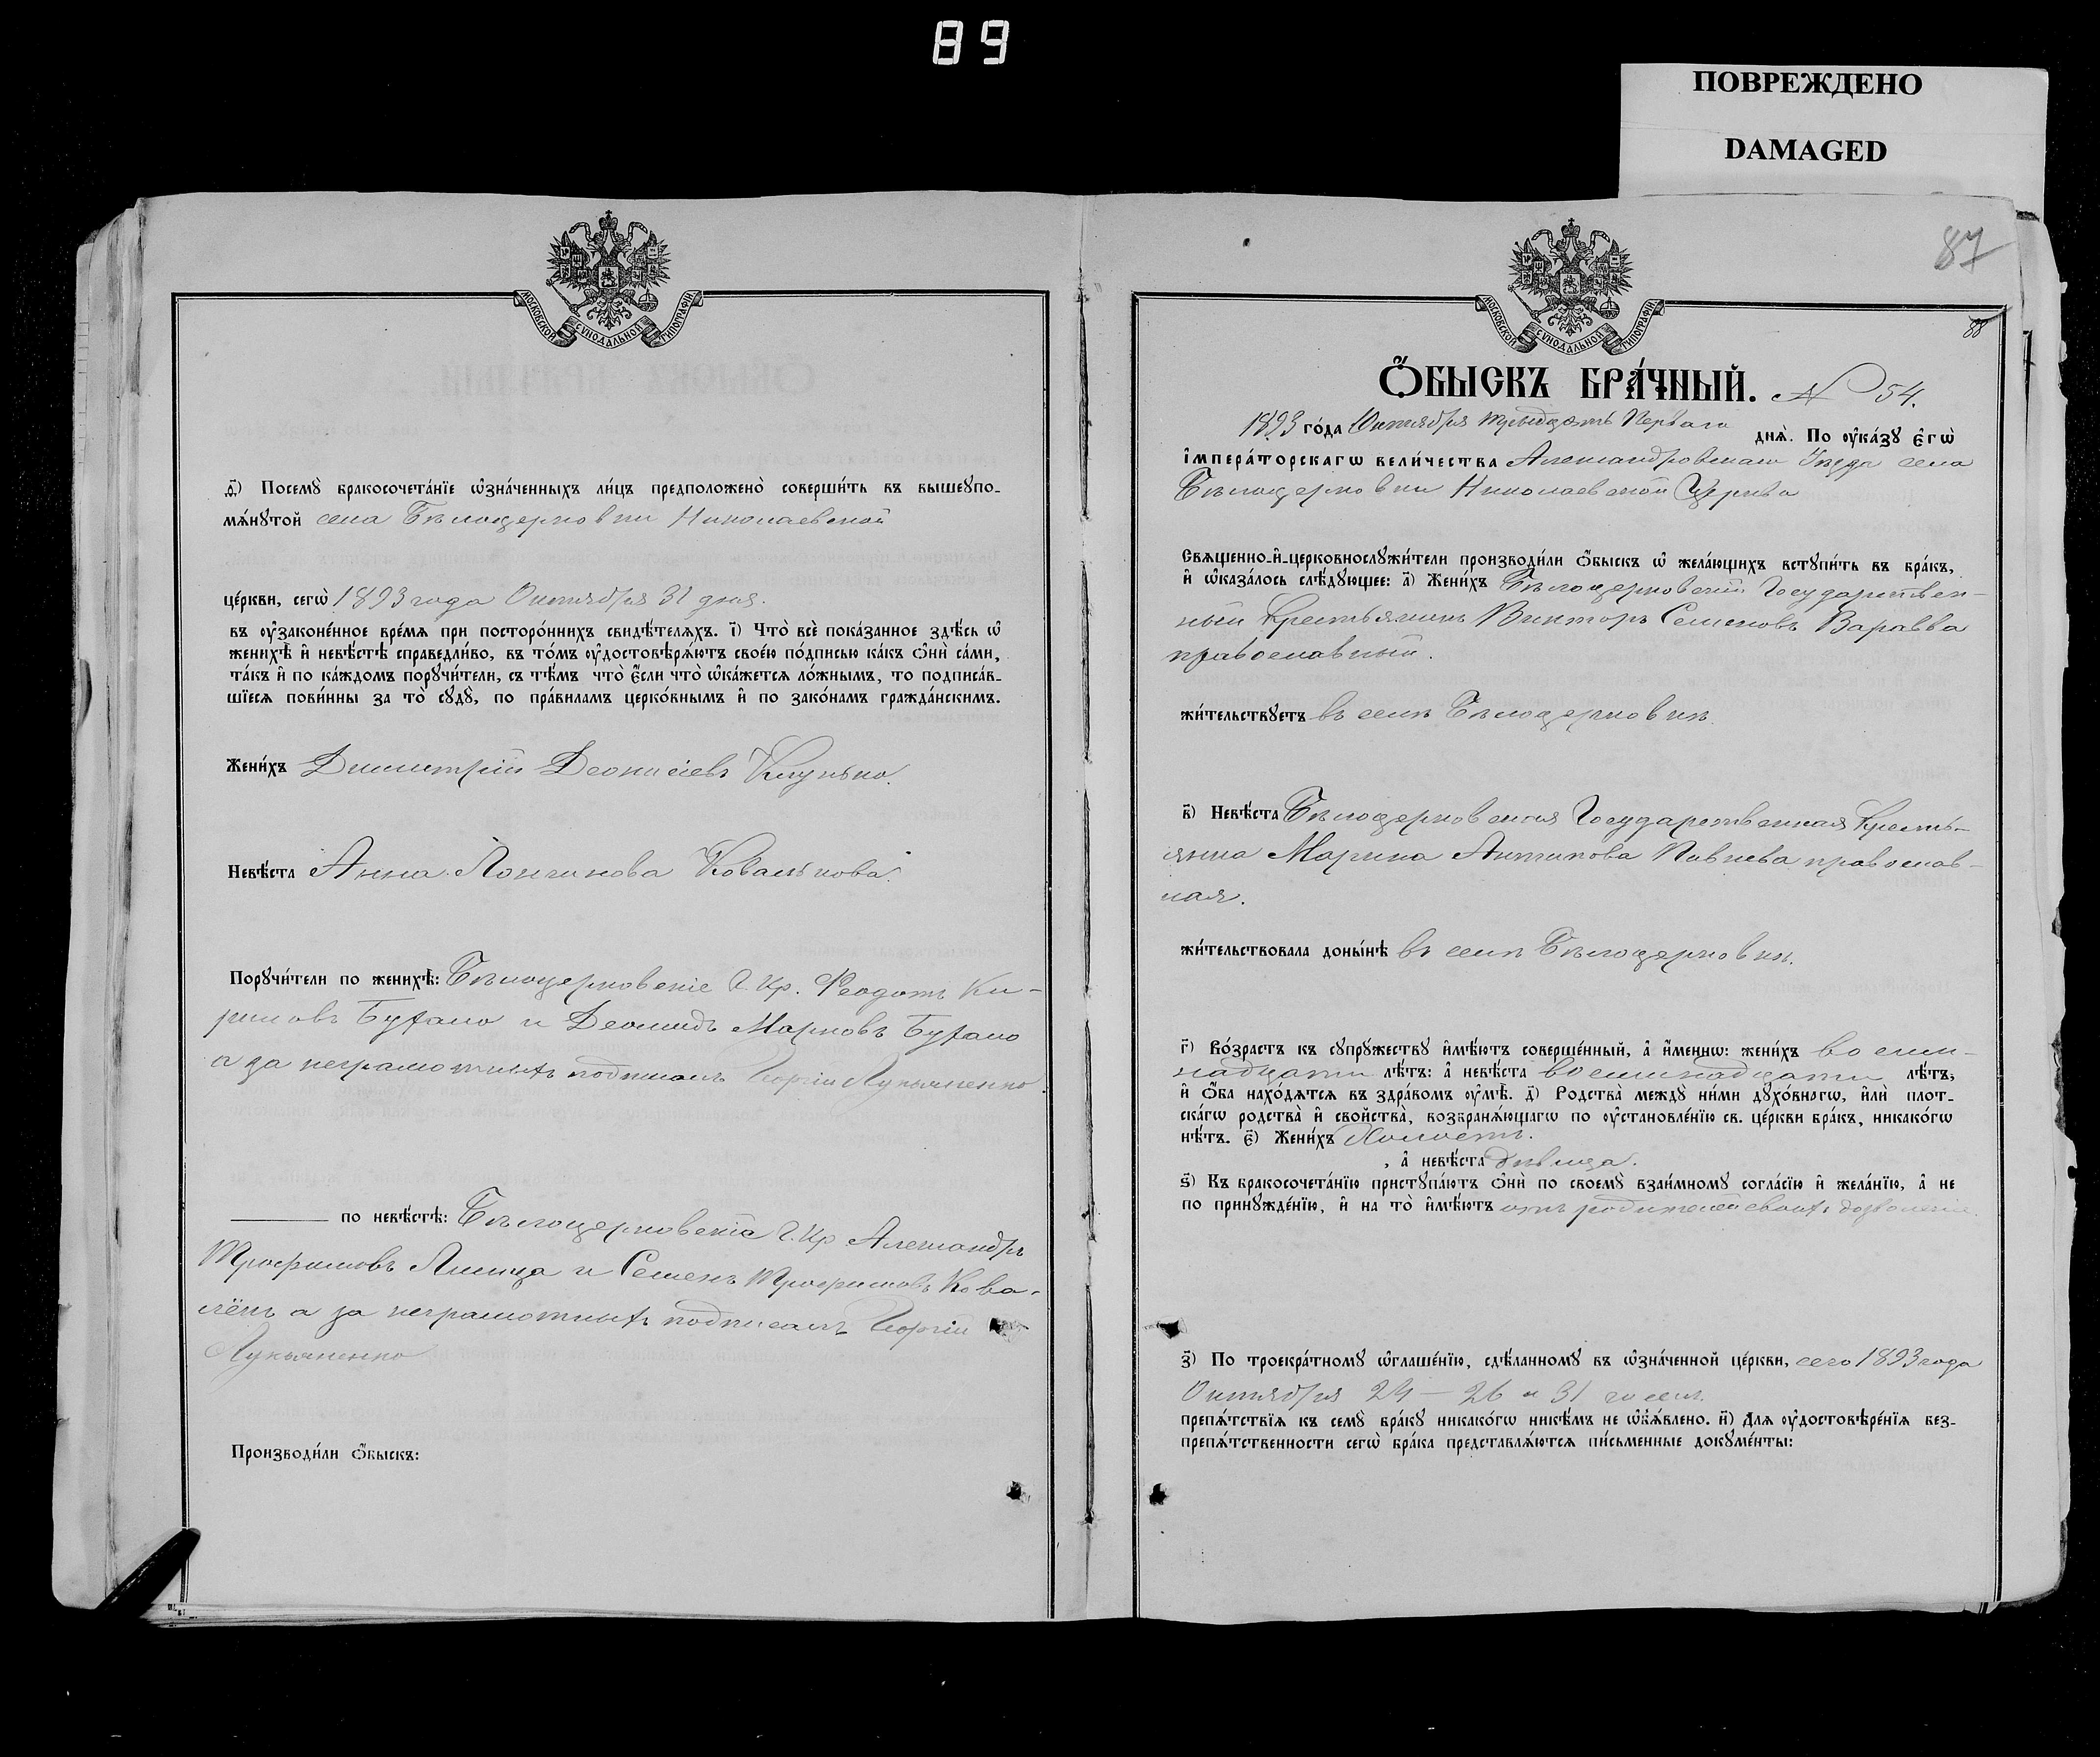 89
ПОВРЕЖДЕНО
DAMAGED
МОСКОВСКОЙ СѴНОДАЛЬНОЙ ТИПОГРАФІИ
ѳ҃) Посемꙋ бракосочета́нїе ѡ҆зна́ченныхъ ли́цъ предположено̀ соверши́ть въ вышеꙋпо-
мѧ́нꙋтой села Бѣлоцерковки Николаевской
це́ркви, сегѡ̀ 1893 года Октября 31 дня.
въ оу҆законе́нное вре́мѧ при посторо́ннихъ свидѣ́телѧхъ. і҃) Что̀ всѐ пока́занное здѣ́сь ѡ҆
женихѣ̀ и҆ невѣ́стѣ справедли́во, въ то́мъ оу҆достовѣрѧ́ютъ свое́ю по́дписью ка́къ ѻ҆нѝ са́ми,
та́къ и҆ по ка́ждомъ порꙋчи́тели, съ тѣ́мъ что̀ є҆́сли что̀ ѡ҆ка́жетсѧ ло́жнымъ, то подписа́в-
шїесѧ пови́нны за то̀ сꙋдꙋ̀, по пра́виламъ церко́внымъ и҆ по зако́намъ гражда́нскимъ.
Жени́хъ Димитрій Деонисіевъ Клунько.
Невѣ́ста Анна Лонгинова Ковалькова.
Порꙋчи́тели по женихѣ̀: Бѣлоцерковскіе Г. Кр. Феодотъ Ки-
риловъ Бухало и Деомидъ Марковъ Бухало
а за неграмотныхъ подписалъ Георгій Лукьяненко
по невѣ́стѣ: Бѣлоцерковскіе Г. Кр Александръ
Трофимовъ Лисица и Семенъ Трофимовъ Кова-
лёкъ а за неграмотныхъ подписалъ Георгій
Лукьяненко
Производи́ли ѻ҆́быскъ:
87
МОСКОВСКОЙ СѴНОДАЛЬНОЙ ТИПОГРАФІИ
88
Ѻ҆́БЫСКЪ БРА́ЧНЫЙ. № 54.
1893 го́да Октября тридцать перваго днѧ̀. По оу҆ка́зꙋ є҆гѡ̀
і҆мпера́торскагѡ вели́чества Александровскаго Уѣзда села
Бѣлоцерковки Николаевской Церкви
Свѧщенно-и҆-церковнослꙋжи́тели производи́ли ѻ҆́быскъ ѡ҆ жела́ющихъ встꙋпи́ть въ бра́къ,
и҆ ѡ҆каза́лось слѣ́дꙋющее: а҃) Жени́хъ Бѣлоцерковскій Государствен-
ный Крестьянинъ Викторъ Семеновъ Варавва
православный.
жи́тельствꙋетъ въ селѣ Бѣлоцерковкѣ.
в҃) Невѣ́ста Бѣлоцерковская Государственная Кресть-
янка Марина Антипова Павлева православ-
ная.
жи́тельствовала доны́нѣ въ селѣ Бѣлоцерковкѣ.
г҃) Во́зрастъ къ сꙋпрꙋжествꙋ и҆мѣ́ютъ соверше́нный, а҆ и҆́меннѡ: жени́хъ восем-
надцати лѣ́тъ: а҆ невѣ́ста восемнадцати лѣ́тъ,
и҆ ѻ҆́ба нахо́дѧтсѧ въ здра́вомъ оу҆мѣ̀. д҃) Родства̀ междꙋ̀ ни́ми дꙋхо́внагѡ, и҆лѝ плот-
ска́гѡ родства̀ и҆ свойства̀, возбранѧ́ющагѡ по оу҆становле́нїю св. це́ркви бра́къ, никако́гѡ
нѣ́тъ. є҃) Жени́хъ Холостъ.
, а҆ невѣ́ста дѣвица.
ѕ҃) Къ бракосочета́нїю пристꙋпа́ютъ ѻ҆нѝ по своемꙋ̀ взаи́мномꙋ согла́сїю и҆ жела́нїю, а҆ не
по принꙋжде́нїю, и҆ на то̀ и҆мѣ́ютъ отъ родителей своихъ дозволеніе.
з҃) По троекра́тномꙋ ѡ҆глаше́нїю, сдѣ́ланномꙋ въ ѡ҆зна́ченной це́ркви, сего 1893 года
Октября 24 – 26 и 31 чиселъ.
препѧ́тствїѧ къ семꙋ̀ бра́кꙋ никако́гѡ никѣ́мъ не ѡ҆б̾ѧ́влено. и҃) Длѧ оу҆достовѣре́нїѧ без-
препѧ́тственности сегѡ̀ бра́ка представлѧ́ютсѧ пи́сьменные докꙋме́нты: